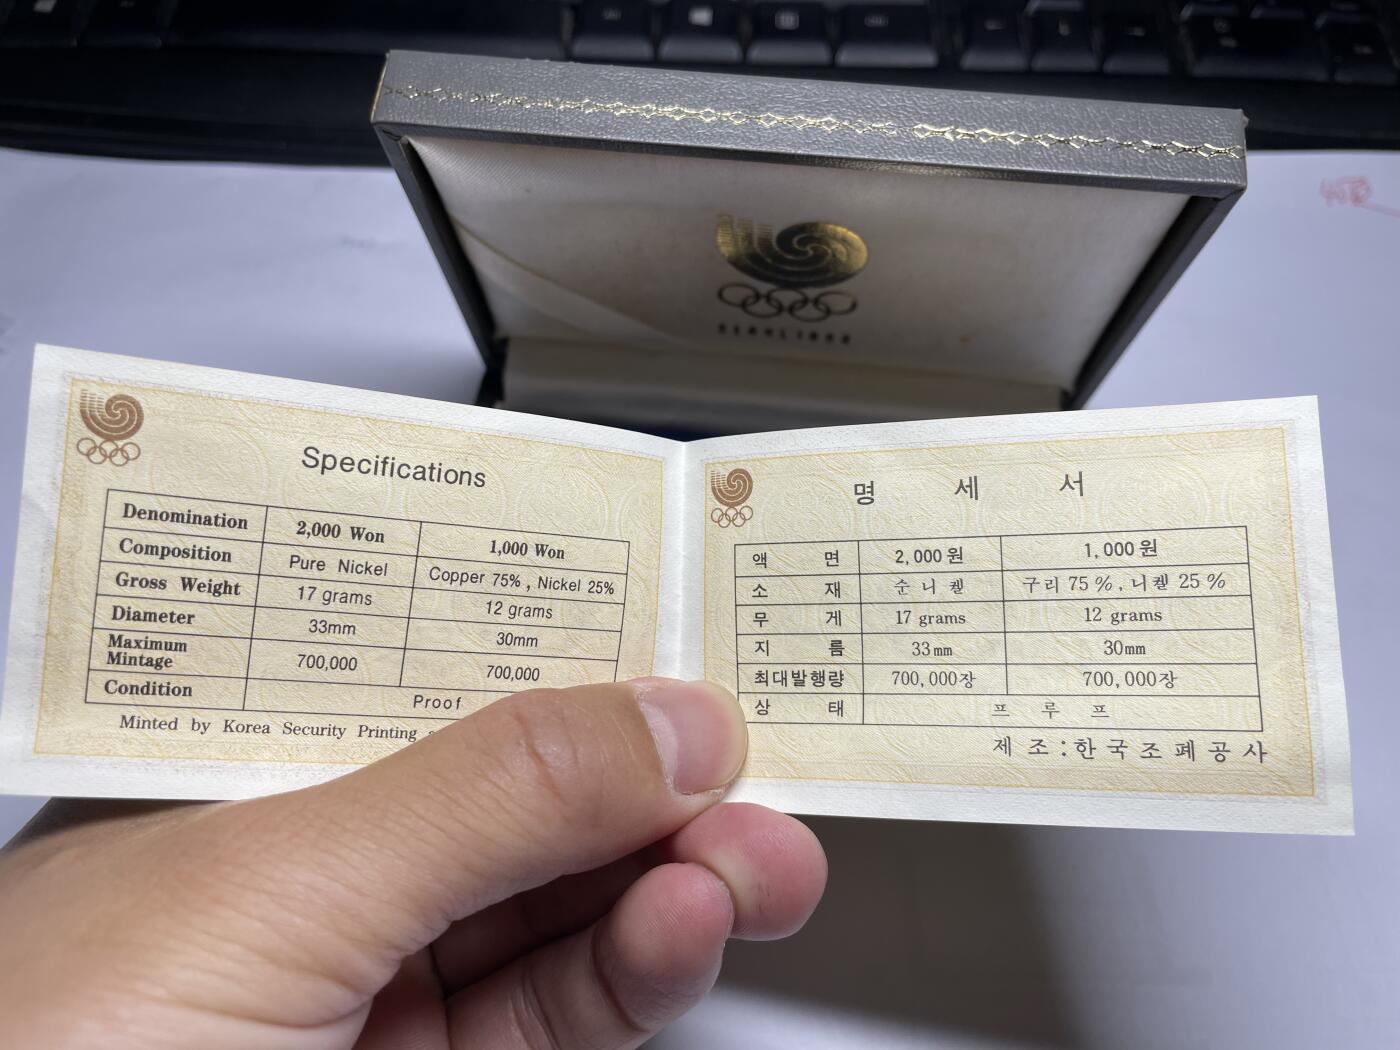 SEOUL 1988
Specifications
Denomination 2,000 Won 1,000 Won
Composition Pure Nickel Copper 75% , Nickel 25%
Gross Weight 17 grams 12 grams
Diameter 33mm 30mm
Maximum
Mintage 700,000 700,000
Condition Proof
Minted by Korea Security Printing
명 세 서
액 면 2,000원 1,000원
소 재 순 니 켈 구리 75 % , 니켈 25 %
무 게 17 grams 12 grams
지 름 33㎜ 30㎜
최대발행량 700,000장 700,000장
상 태 프 루 프
제 조 : 한 국 조 폐 공 사